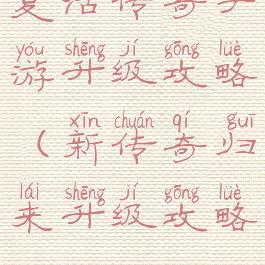 复活传奇手
yóu shēng jí gōng lüè
游升级攻略
xīn chuán qí guī
（新传奇归
lái shēng jí gōng lüè
来升级攻略